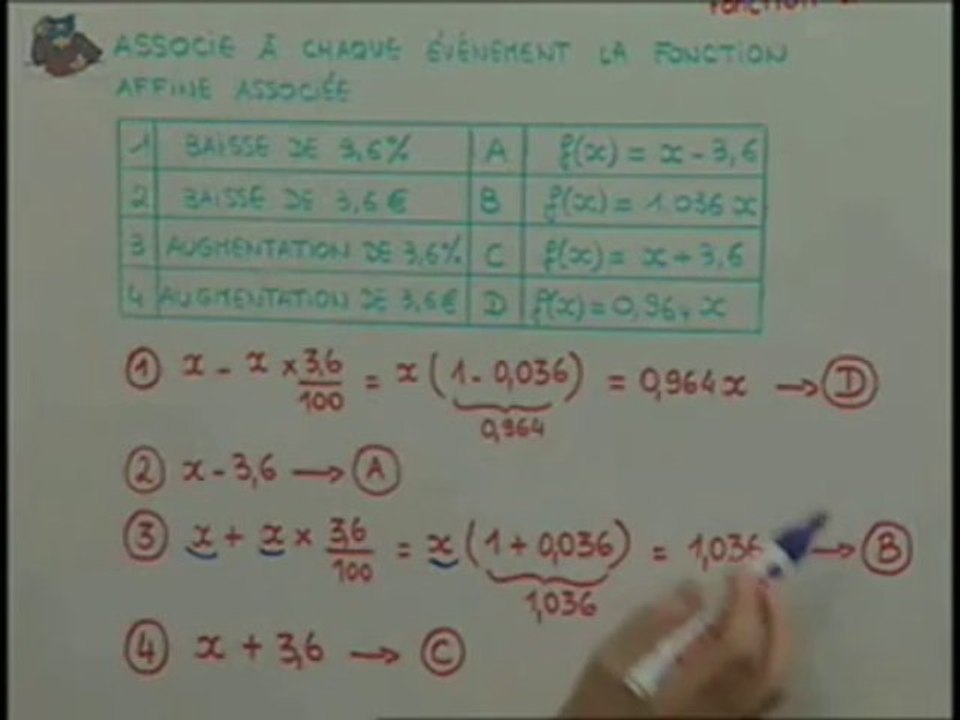 fonction
ASSOCIE À CHAQUE ÉVÉNEMENT LA FONCTION
AFFINE ASSOCIÉE
1 BAISSE DE 3,6% A f(x) = x - 3,6
2 BAISSE DE 3,6 € B f(x) = 1.036 x
3 AUGMENTATION DE 3,6% C f(x) = x + 3,6
4 AUGMENTATION DE 3,6€ D f(x) = 0,964 x
① x - x × 3,6/100 = x (1 - 0,036) = 0,964 x → Ⓓ
0,964
② x - 3,6 → Ⓐ
③ x + x × 3,6/100 = x (1 + 0,036) = 1,036 → Ⓑ
1,036
④ x + 3,6 → Ⓒ